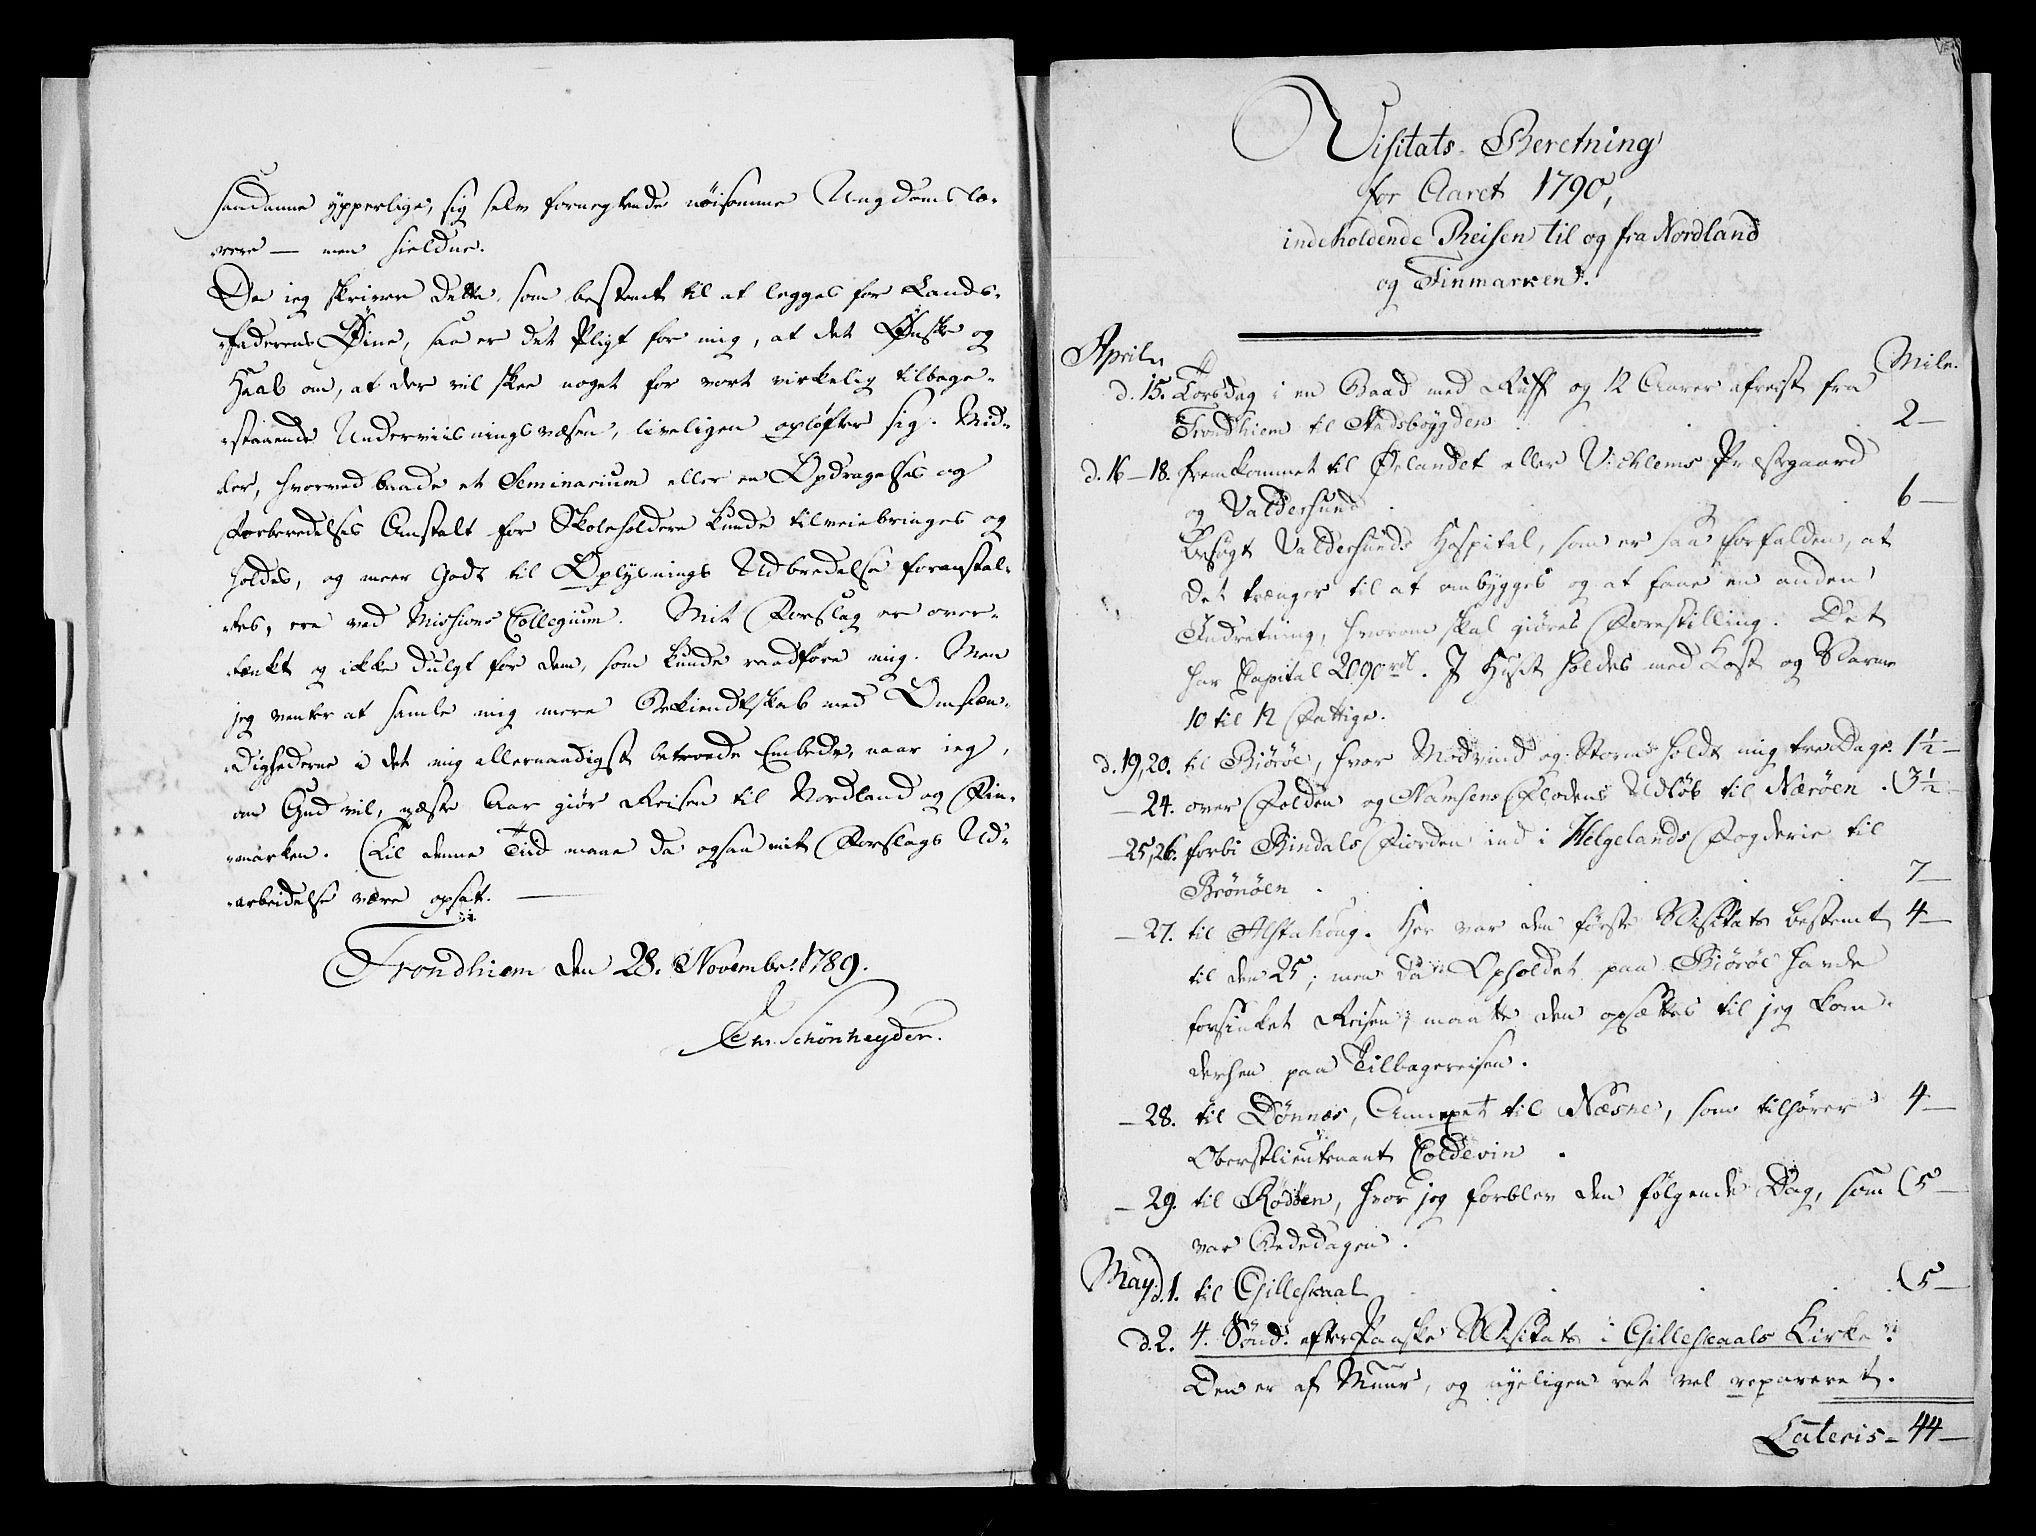 saadanne ypperlige, sig selv fornegtende nöisomme Ungdomslæ-
rere — men sieldne.
Da jeg skriver dette, som bestemt til at legges for Lands-
faderens Øine, saa er det Pligt for mig, at det Ønske og
Haab om, at der vil skee noget for vort virkelig tilbage-
staaende Underviisningsvæsen, liveligen opløfter sig. Mid-
ler, hvorved baade et Seminarium eller en Opdragelses og
Forberedelses Anstalt for Skoleholdere kunde tilveiebringes og
holdes, og meer Godt til Oplysnings Udbredelse foranstal-
tes, ere ved Missions Collegium. Mit Forslag er over-
tænkt og ikke dulgt for dem, som kunde raadføre mig. Men
jeg venter at samle mig mere Bekiendtskab med Omstæn-
dighederne i det mig allernaadigst betroede Embede, naar jeg,
om Gud vil, næste Aar giør Reisen til Nordland og Fin-
marken. Til denne Tiid maae da ogsaa mit Forslags Ud-
arbeidelse være opsat. —
Trondhiem den 28. Novembr. 1789.
Chr. Schönheyder.
Visitats-Beretning
for Aaret 1790,
indeholdende Reisen til og fra Nordland
og Finmarken.
April. Mile.
d. 15. Torsdag i en Baad med Ruff og 12 Aarer afreist fra
Trondhiem til Stadsböygden 2 —
d. 16—18. fremkommet til Ørlandet eller Vichlems Præstgaard
og Valdersund 6 —
Besøgt Valdersunds Hospital, som er saa forfalden, at
det trænger til at ombygges og at faae en anden
Indretning, hvorom skal giøres Forestilling. Det
har Capital 2090 rdl. I Huset holdes med Kost og Varme
10 til 12 Fattige.
d. 19, 20. til Biöröe, hvor Modvind og Storm holdt mig tre Dage. 1½ —
— 24. over Folden og Namsens Flodens Udløb til Næröen. 3½ —
— 25, 26. forbi Bindals Fiorden ind i Helgelands Fogderie til
Brönöen 7 —
— 27. til Alstahoug. Her var den første Visitats bestemt 4 —
til den 25; men da Opholdet paa Biöröe havde
forsinket Reisen, maatte den opsættes til jeg kom
derhen paa Tilbagereisen.
— 28. til Dönnes, Annexet til Næsne, som tilhører 4 —
Oberstlieutenant Coldevin.
— 29. til Rödöen, hvor jeg forblev den følgende Dag, som 5 —
var Bededagen.
May d. 1. til Gilleskaal 5 —
d. 2. 4. Sönd. efter Paaske Visitats i Gilleskaals Kirke.
Den er af Muur, og nyeligen ret vel repareret.
Lateris — 44 —